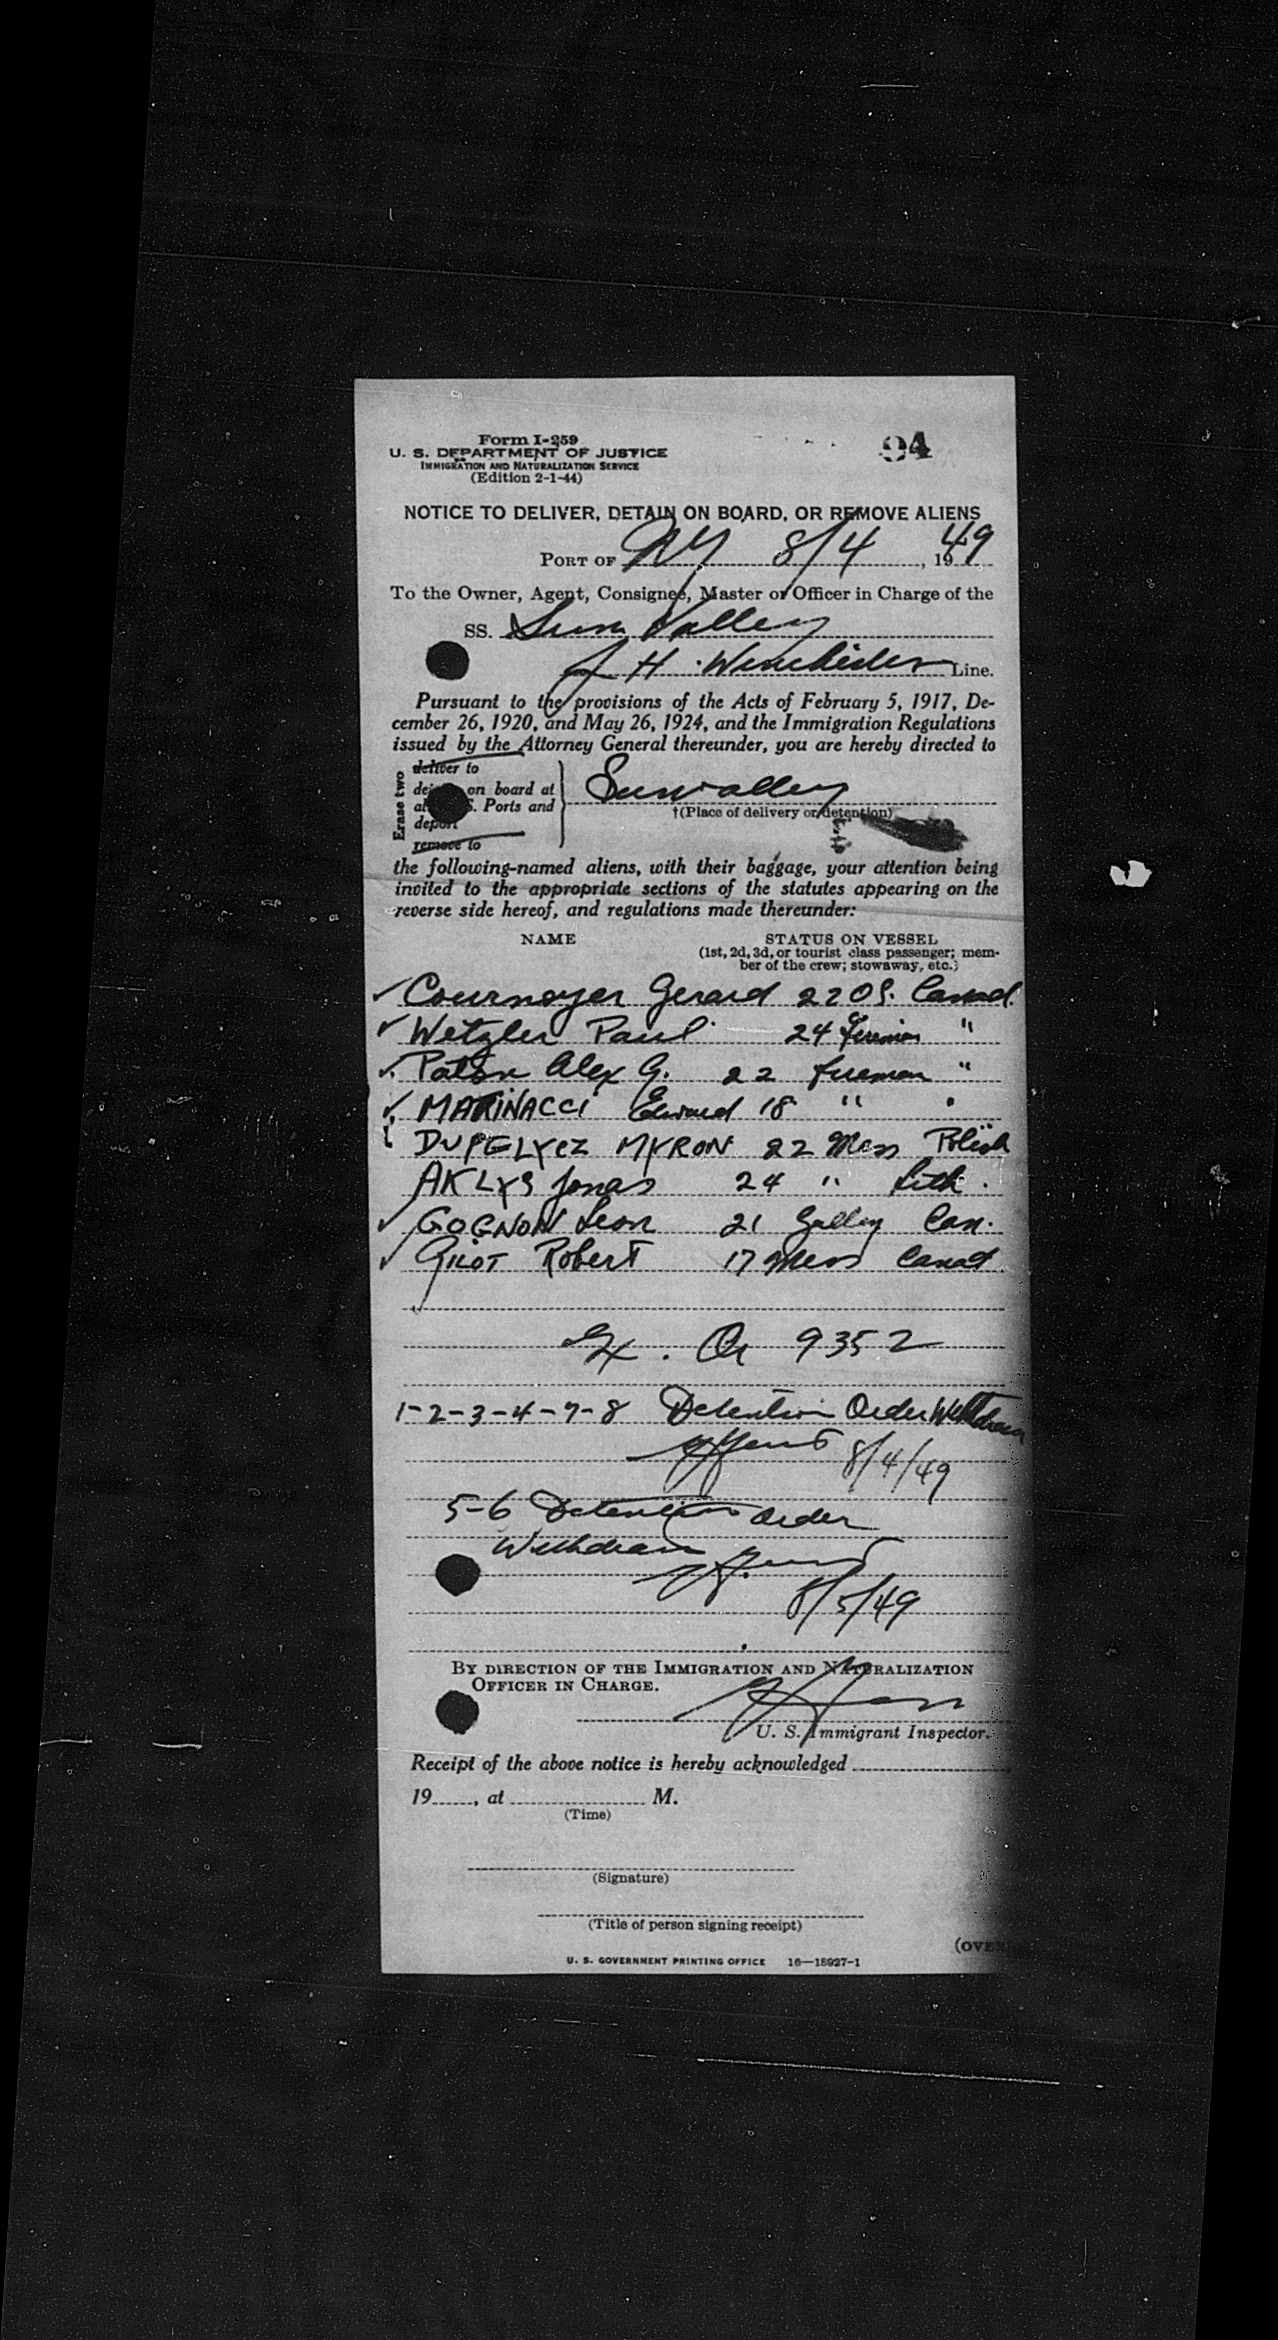 Form I-259
94
U. S. DEPARTMENT OF JUSTICE
IMMIGRATION AND NATURALIZATION SERVICE
(Edition 2-1-44)
NOTICE TO DELIVER, DETAIN ON BOARD, OR REMOVE ALIENS
PORT OF NY 8/4, 1949
To the Owner, Agent, Consignee, Master or Officer in Charge of the
SS. Sun Valley
J H. Winchester Line.
Pursuant to the provisions of the Acts of February 5, 1917, De-
cember 26, 1920, and May 26, 1924, and the Immigration Regulations
issued by the Attorney General thereunder, you are hereby directed to
Erase two
deliver to
on board at
Ports and
deport
remove to
Sunvalley
†(Place of delivery or detention)
the following-named aliens, with their baggage, your attention being
invited to the appropriate sections of the statutes appearing on the
reverse side hereof, and regulations made thereunder:
NAME STATUS ON VESSEL
(1st, 2d, 3d, or tourist class passenger; mem-
ber of the crew; stowaway, etc.)
✓ Cournoyer Gerard 22 OS. Canad.
✓ Wetzler Paul 24 Fireman "
✓ Paton Alex G. 22 fireman "
✓ MARINACCI Edward 18 " "
DUPELYCZ MYRON 22 Mess Polish
AKLYS Jonas 24 " Lith.
✓ GOGNON Leon 21 Galley Can.
✓ GILOT Robert 17 Mess Canad.
9352
1-2-3-4-7-8 Detention Order Withdrawn
8/4/49
5-6 Detention Order
Withdrawn
8/5/49
BY DIRECTION OF THE IMMIGRATION AND NATURALIZATION
OFFICER IN CHARGE.
U. S. Immigrant Inspector.
Receipt of the above notice is hereby acknowledged
19......, at .................... M.
(Time)
(Signature)
(Title of person signing receipt)
(OVER
U. S. GOVERNMENT PRINTING OFFICE 16—18927-1